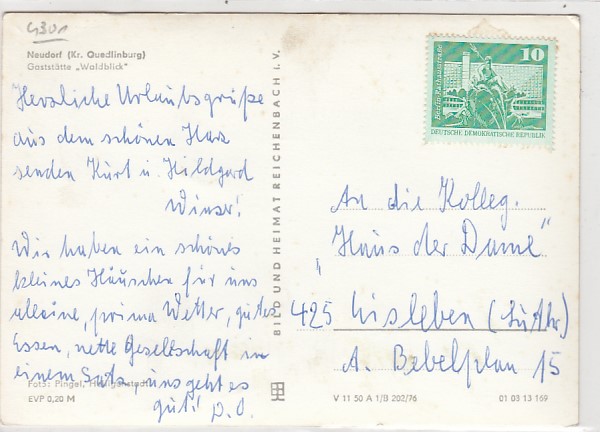 4301
Neudorf (Kr. Quedlinburg)
Gaststätte „Waldblick"
Herzliche Urlaubsgrüße
aus dem schönen Harz
senden Kurt u. Hildgard
Winser!
Wir haben ein schönes
kleines Häuschen für uns
alleine, prima Wetter, gutes
Essen, nette Gesellschaft in
einem Satz, uns geht es
gut! D.O.
Foto: Pingel, Heiligenstadt
EVP 0,20 M
BILD UND HEIMAT REICHENBACH I. V.
10
Berlin, Rathausstraße
DEUTSCHE DEMOKRATISCHE REPUBLIK
An die Kolleg.
„Haus der Dame"
425 Eisleben (Luth)
A. Bebelplan 15
V 11 50 A 1/B 202/76
01 03 13 169